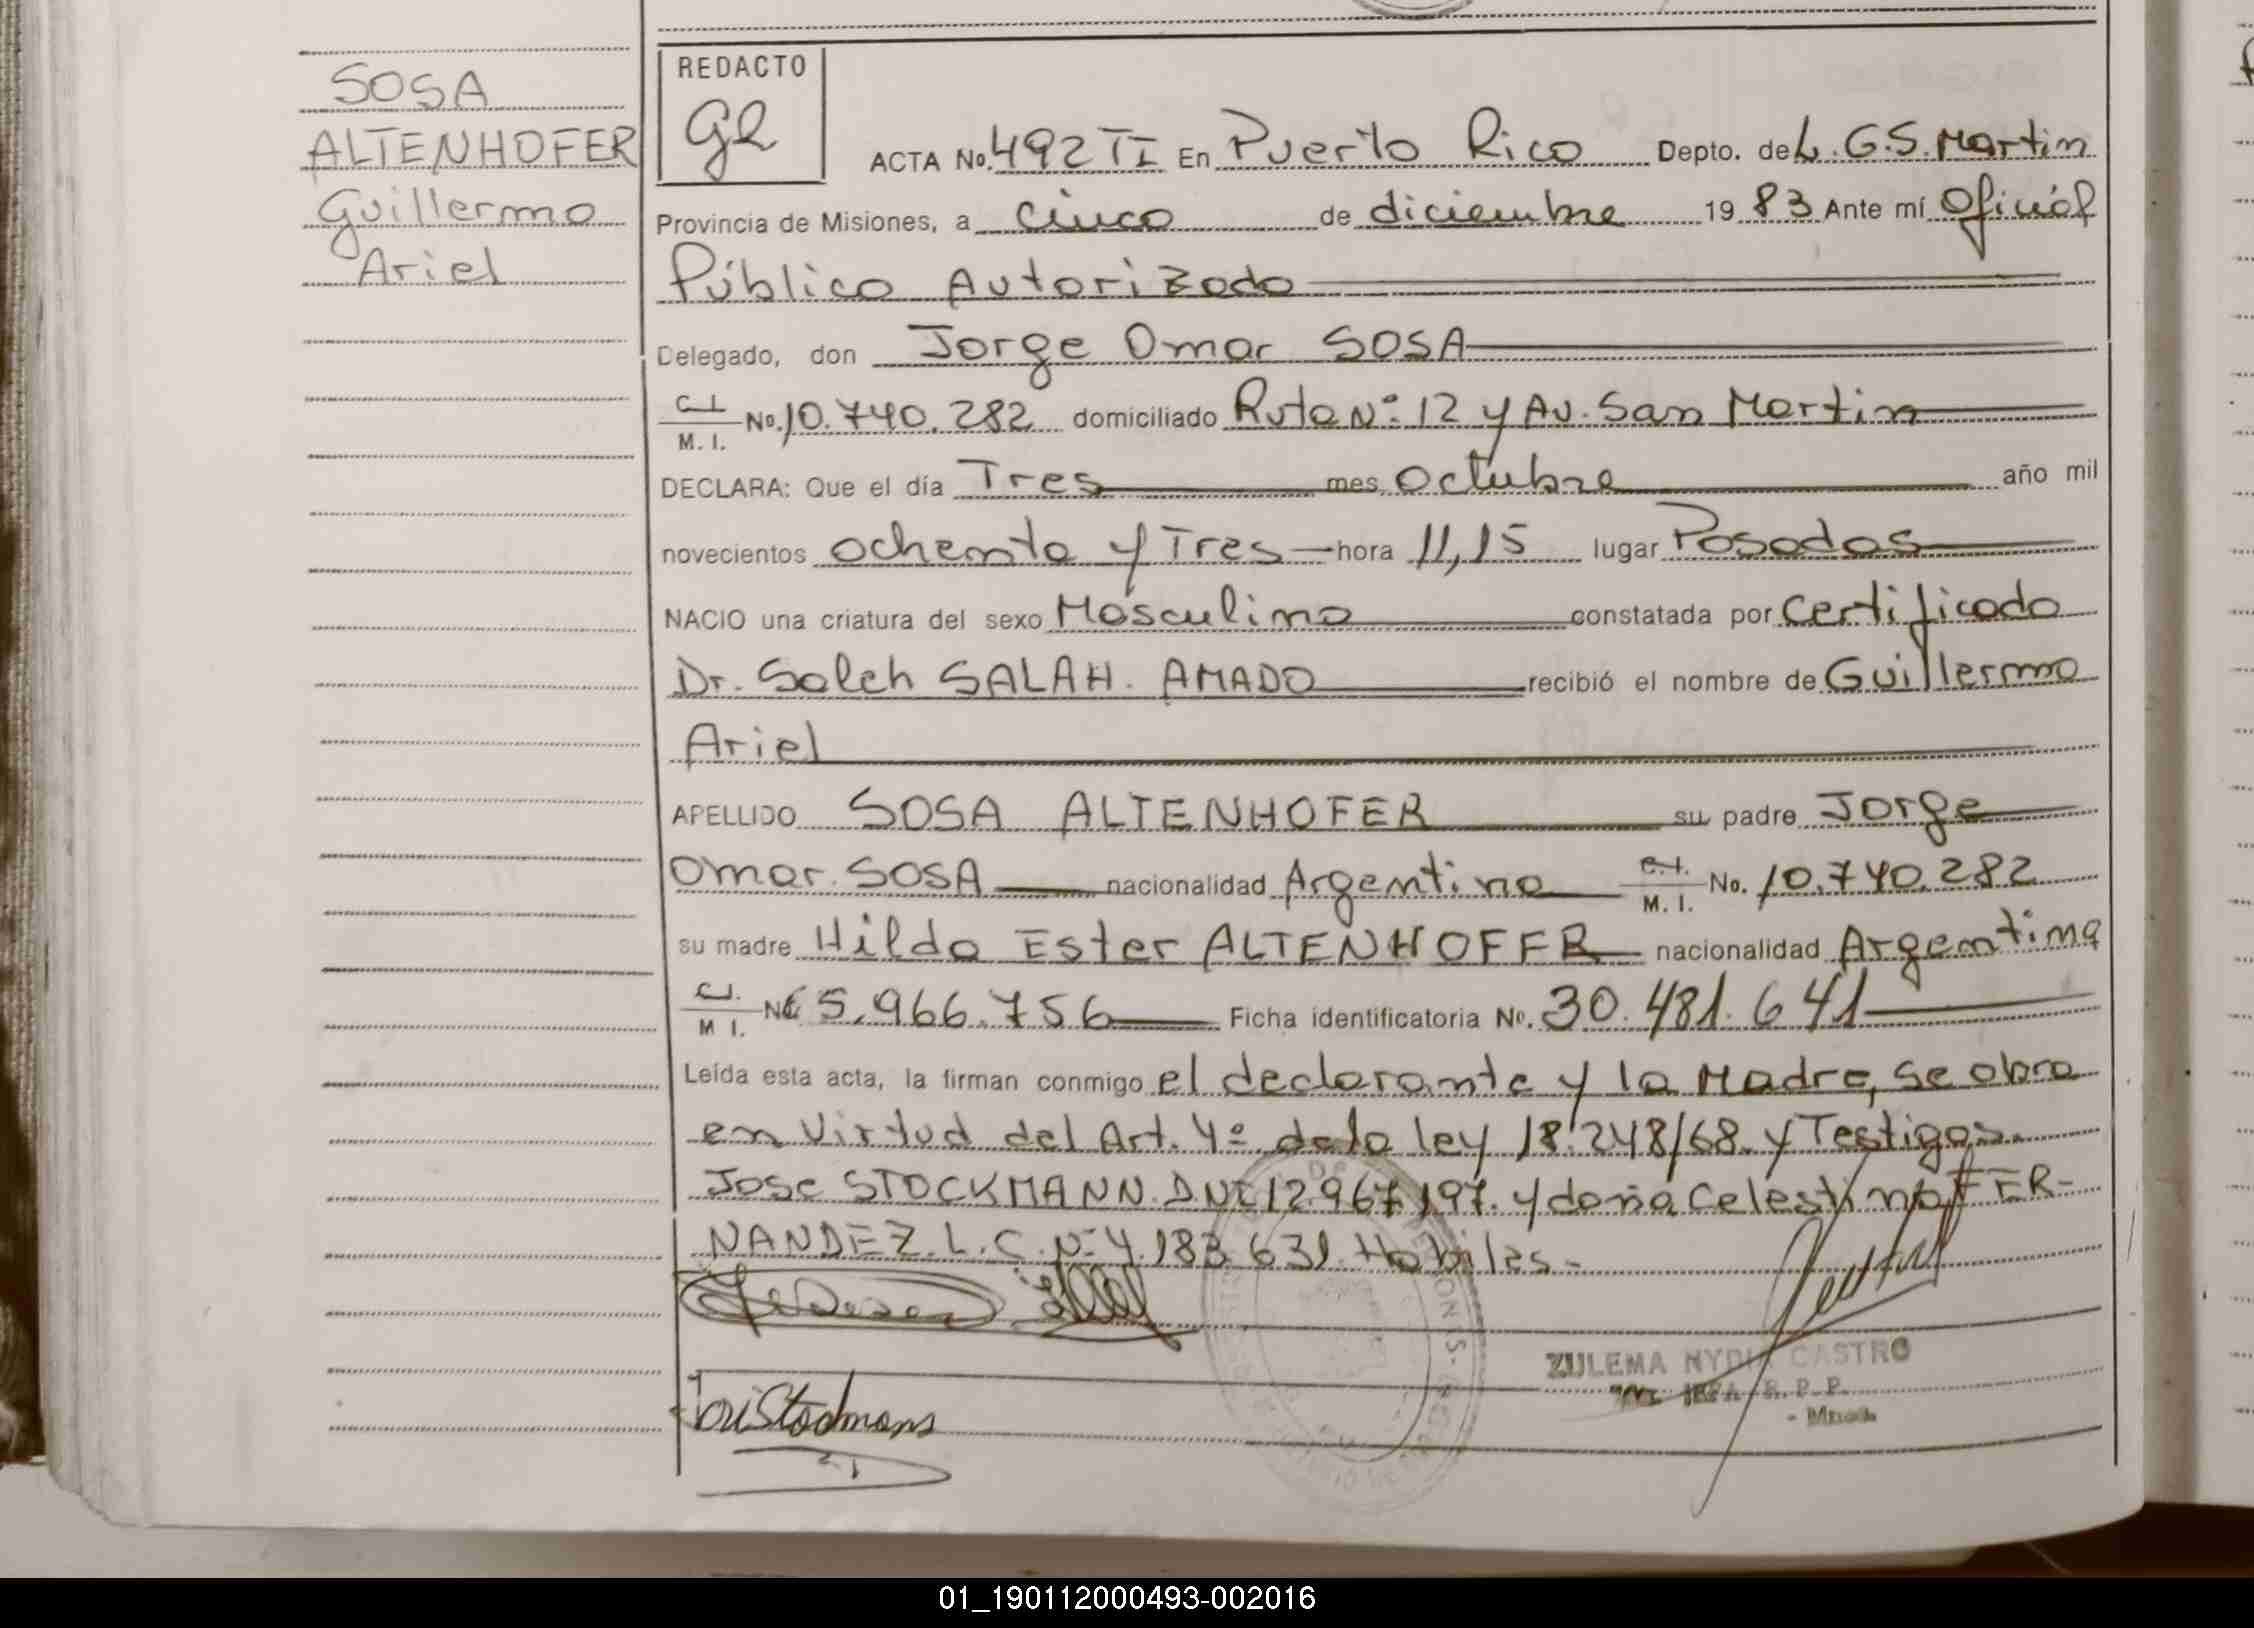 SOSA
ALTENHOFER
Guillermo
Ariel
REDACTO
ACTA No. 492 TI En Puerto Rico Depto. de L.G.S. Martin
Provincia de Misiones, a cinco de diciembre 19 83 Ante mí Oficial
Público Autorizado
Delegado, don Jorge Omar SOSA
C.I. M. I. No. 10.740.282 domiciliado Ruta Nº 12 y Av. San Martin
DECLARA: Que el día Tres mes Octubre año mil
novecientos ochenta y Tres hora 11,15 lugar Posadas
NACIO una criatura del sexo Masculino constatada por Certificado
Dr. Saleh SALAH. AMADO recibió el nombre de Guillermo
Ariel
APELLIDO SOSA ALTENHOFER su padre Jorge
Omar SOSA nacionalidad Argentino C.I. M. I. No. 10.740.282
su madre Hilda Ester ALTENHOFER nacionalidad Argentina
C.I. M I. 5.966.756 Ficha identificatoria No. 30.481.641
Leída esta acta, la firman conmigo el declarante y la Madre, se obra
en virtud del Art. 4º de la ley 18.248/68. y Testigos.
Jose STOCKMANN DNI 12.967.197. y doña Celestina FER-
NANDEZ. L.C. Nº 4.183.631. Habiles.-
ZULEMA NYDIA CASTRO
R.P.P.
01_190112000493-002016